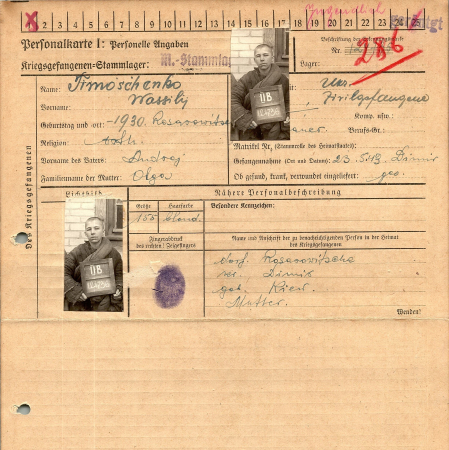 2 3 4 5 6 7 8 9 10 11 12 13 14 15 16 17 18 19 20 21 22 23 24 25
Jugendlich
Personalkarte I: Personelle Angaben
Kriegsgefangenen-Stammlager: M.-Stammlag
Beschriftung der Erkennungsmarke
Nr.
286
Lager:
Des Kriegsgefangenen
Name: Timoschenko
Vorname: Wassilij
Geburtstag und -ort: -1930. Rosarowitsche
Religion: Orth.
Vorname des Vaters: Andrej
Familienname der Mutter: Olga
Staatsangehörigkeit: Ukr.
Zivilgefangene
Komp. usw.:
Berufs-Gr.:
Matrikel Nr. (Stammrolle des Heimatstaates):
Gefangennahme (Ort und Datum): 23.5.43. Dimir
Ob gesund, krank, verwundet eingeliefert: ges.
Lichtbild
Nähere Personalbeschreibung
Größe
Haarfarbe
Besondere Kennzeichen:
155 blond.
Fingerabdruck
des rechten Zeigefingers
Name und Anschrift der zu benachrichtigenden Person in der Heimat
des Kriegsgefangenen
dorf. Rosarowitsche
Dimir
geb. Kiew.
Mutter.
Wenden!
II B
II B